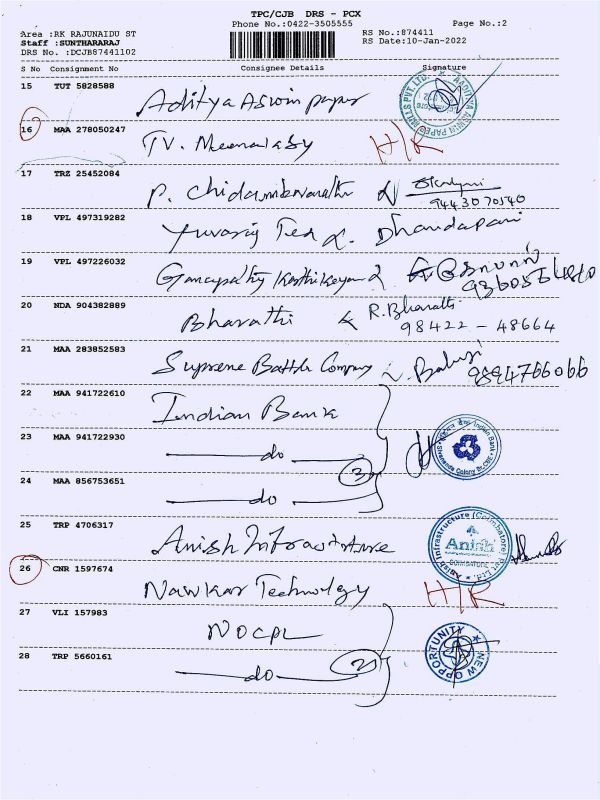 TPC/CJB DRS - PCX
Phone No.:0422-3505555 Page No.:2
Area :RK RAJUNAIDU ST RS No.:874411
Staff :SUNTHARARAJ RS Date:10-Jan-2022
DRS No. :DCJB87441102
S No Consignment No Consignee Details Signature
15 TUT 5828588 Aditya Aswin paper
16 MAA 278050247 TV. Meenalaby H/R
17 TRZ 25452084 P. Chidambaranathi
9443070540
18 VPL 497319282 Yuvaraj Tex Dhandapani
19 VPL 497226032 Ganapathy Karthikeyan
20 NDA 904382889 Bharathi R.Bharathi
98422 - 48664
21 MAA 283852583 Supreme Battle Company Babuji
9894766066
22 MAA 941722610 Indian Bank
23 MAA 941722930 do
3
24 MAA 856753651 do
25 TRP 4706317 Anish Infrastructure
Anish Infrastructure (Coimbatore) Pvt Ltd.
Anish
COIMBATORE
26 CNR 1597674 Nawkar Technology H/R
27 VLI 157983 NOCPL
NEW OPPORTUNITY
28 TRP 5660161 do 2